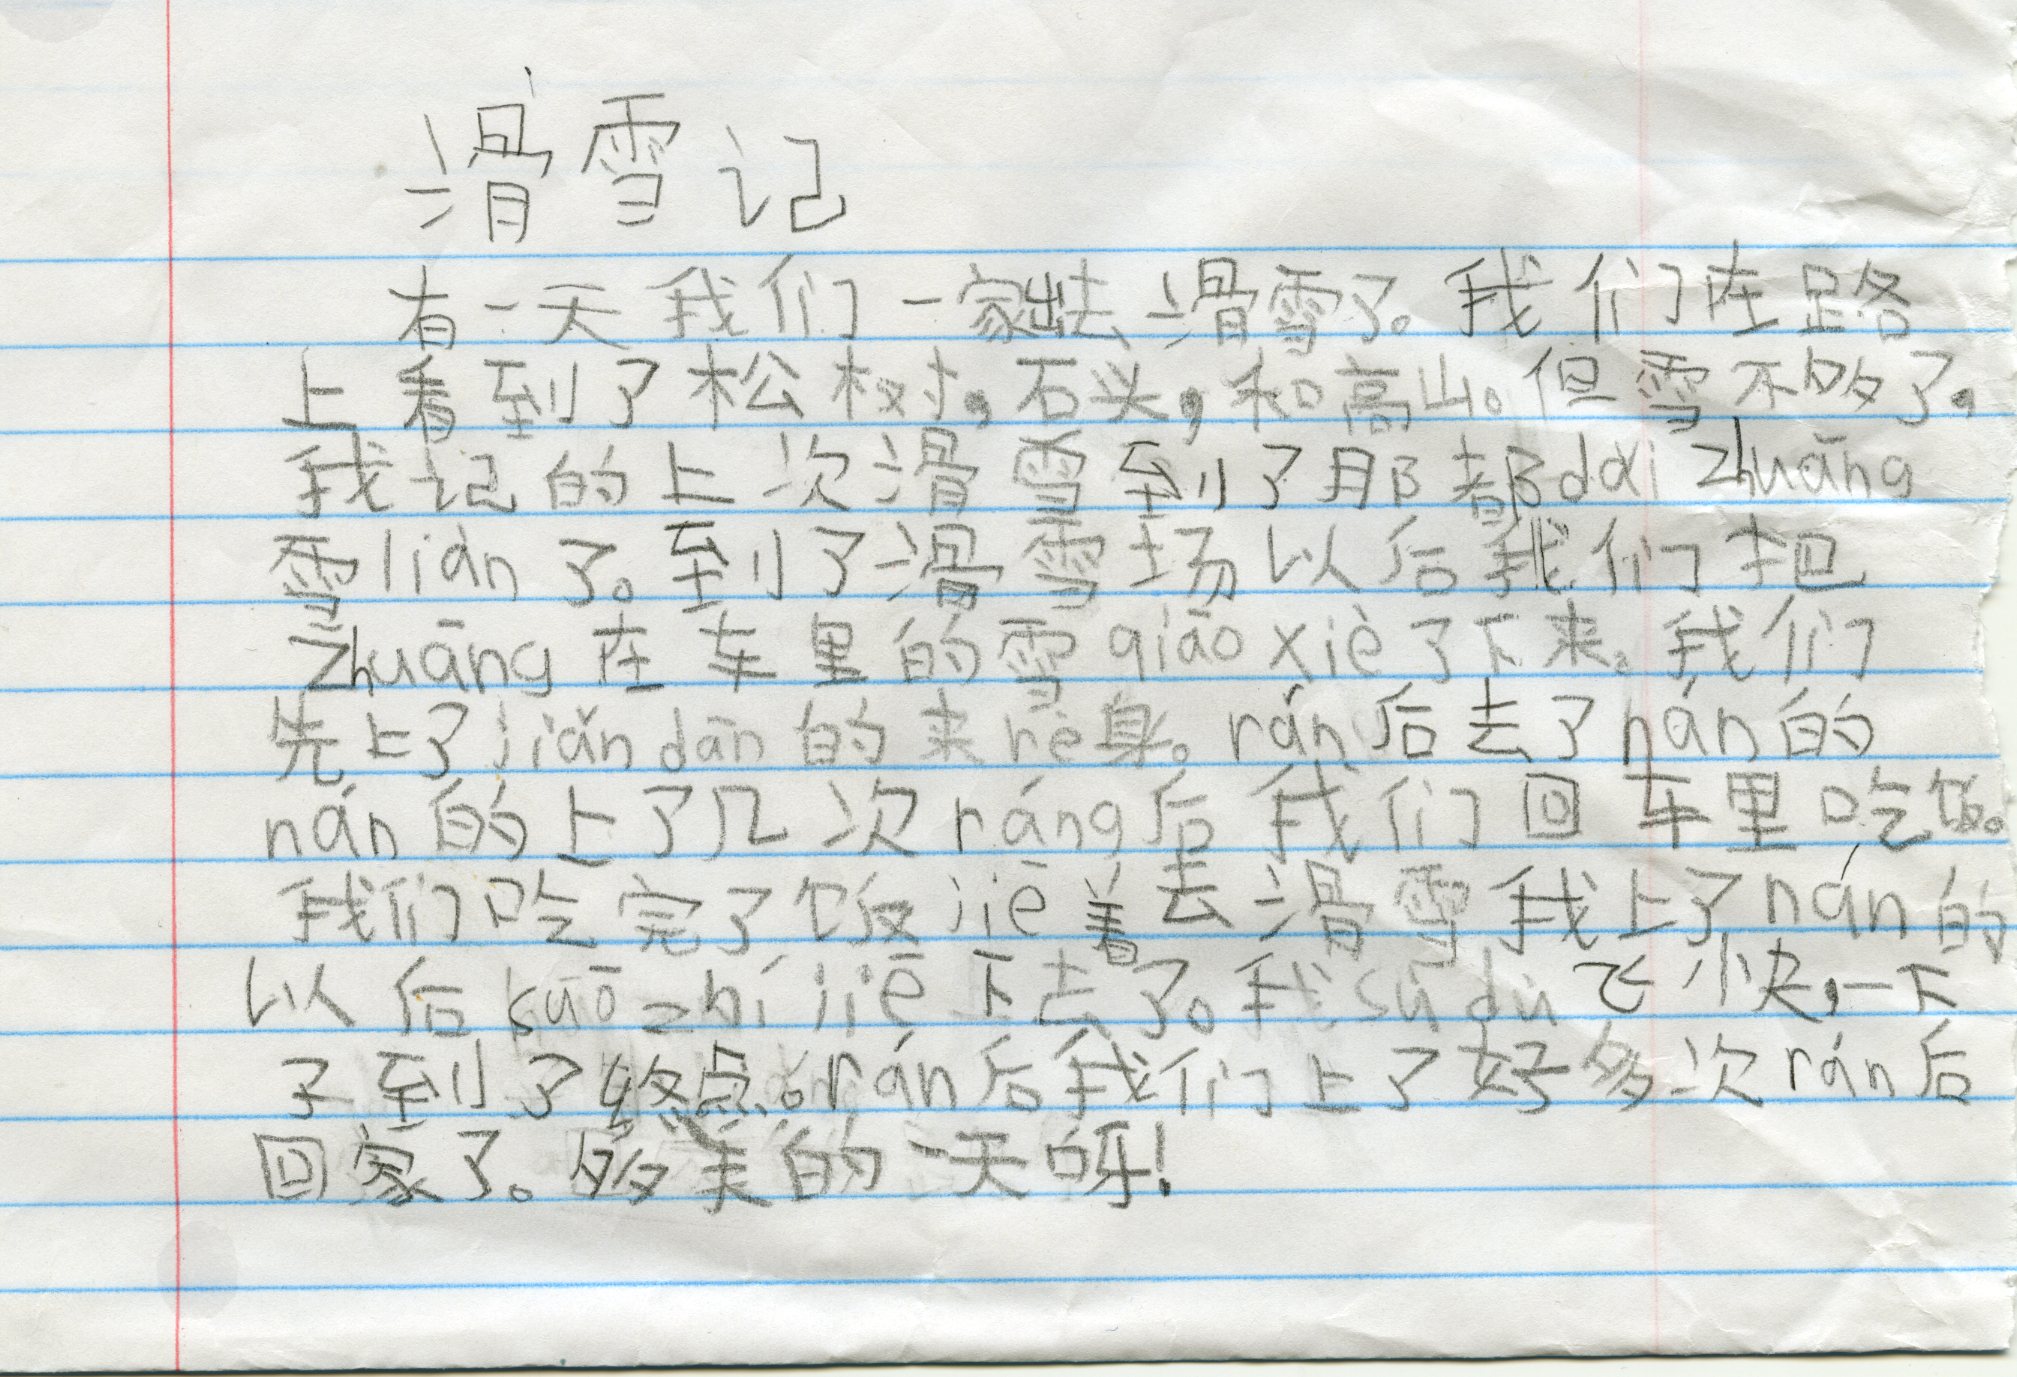 滑雪记
有一天我们一家出去滑雪了。我们在路
上看到了松树，石头，和高山。但雪不够了。
我记的上次滑雪到了那都dai zhuāng
雪lián了。到了滑雪场以后我们把
zhuāng在车里的雪qiāo xiè了下来。我们
先上了jiǎn dān的来rè身。rán后去了nán的
nán的上了几次ráng后我们回车里吃饭。
我们吃完了饭jiē着去滑雪我上了nán的
以后suō zhí jiē下去了。我sù dù飞快，一下
子到了终点。rán后我们上了好多次rán后
回家了。多美的一天呀！